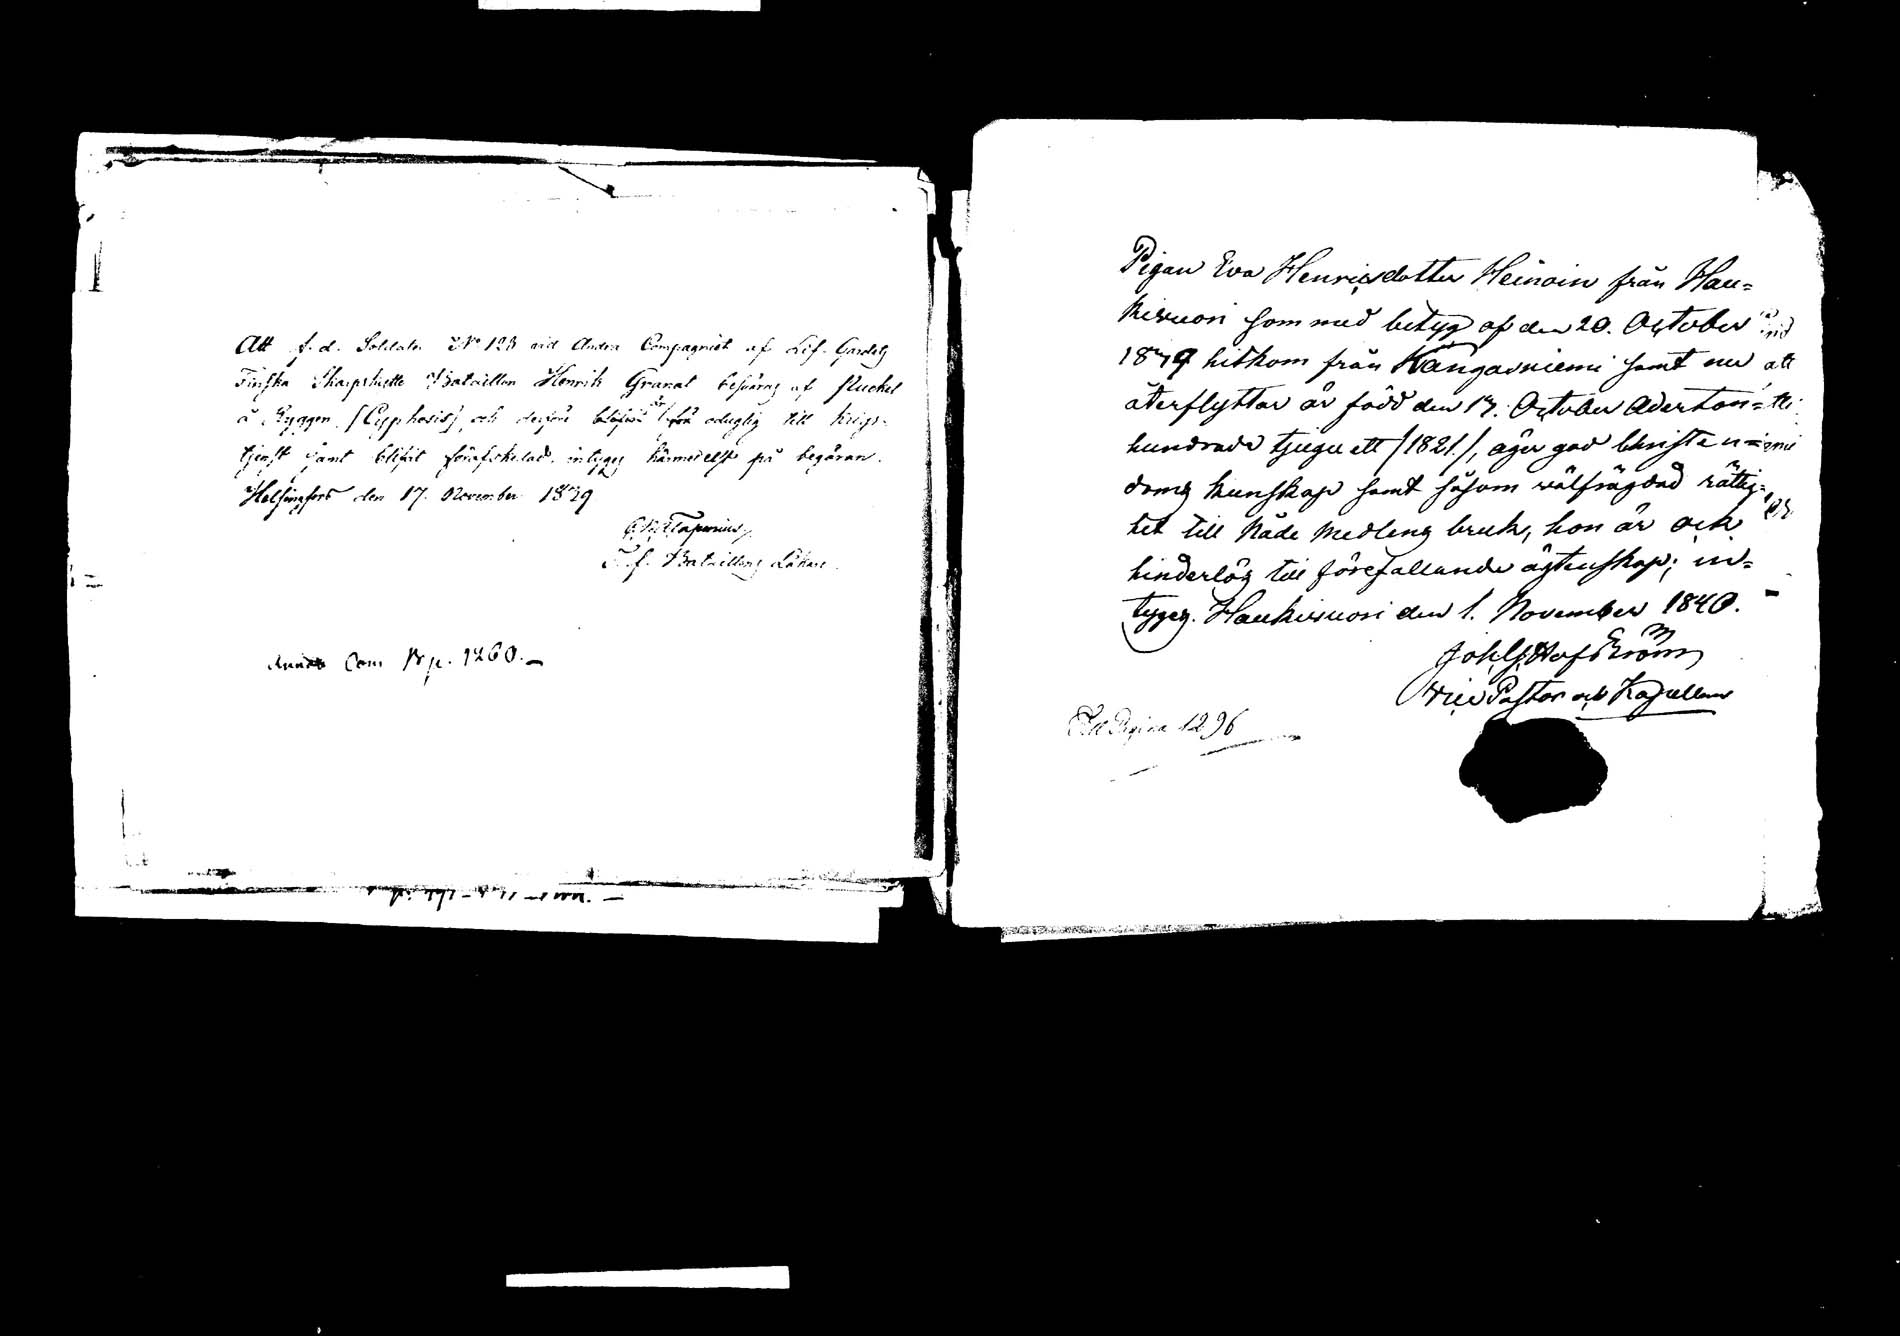 Att f.d. Soldaten No 123 vid Andra Compagniet af Lif-Gardets
Finska Skarpskytte Bataillon Henrik Granat besväras af Puckel
å Ryggen (Cyphosis), och derföre är oduglig till Krigs-
tjenst samt blifvit förafskedad, intygas härmedelst på begäran.
Helsingfors den 17. November 1839
T. f. Bataillons Läkare.
Com B p. 1260.
Pigan Eva Henricsdotter Heinoin från Hau=
kivuori som med betyg af den 20. October
1839 hitkom från Kangasniemi samt nu
återflyttar är född den 13. October Aderton=
hundrade tjugu ett /1821/, äger god Christen=
doms kunskap samt såsom välfrägdad rättig=
het till Nåde Medlens bruk, hon är ock
hinderlös till förefallande ägtenskap; in=
tygas. Haukivuori den 1. November 1840.
Joh. Hofström
Vice Pastor och Kapellan
Till Pagina 1296